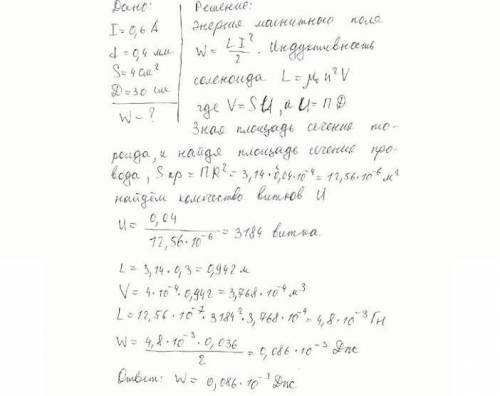 Дано:
I = 0,6 А
d = 0,4 мм
S = 4 см²
D = 30 см
W - ?
Решение:
Энергия магнитного поля
W = LI²/2. Индуктивность
соленоида L = μ₀ n² V
где V = S U, а U = П D
Зная площадь сечения то-
роида, и найдя площадь сечение про-
вода, S пр = ПR² = 3,14 · 0,04² · 10⁻⁴ = 12,56 · 10⁻⁶ м²
найдём количество витков U
U = 0,04 / 12,56 · 10⁻⁶ = 3184 витка
L = 3,14 · 0,3 = 0,942 м
V = 4 · 10⁻⁴ · 0,942 = 3,768 · 10⁻⁴ м³
L = 12,56 · 10⁻⁷ · 3184² · 3,768 · 10⁻⁴ = 4,8 · 10⁻³ Гн
W = 4,8 · 10⁻³ · 0,036 / 2 = 0,086 · 10⁻³ Дж
Ответ: W = 0,086 · 10⁻³ Дж